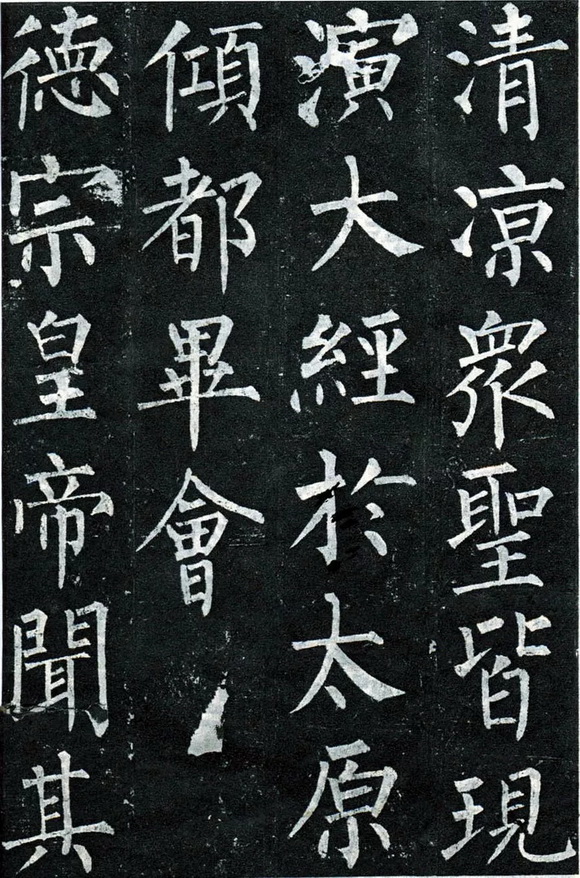 清凉衆聖皆現
演大經於太原
傾都畢會
德宗皇帝聞其